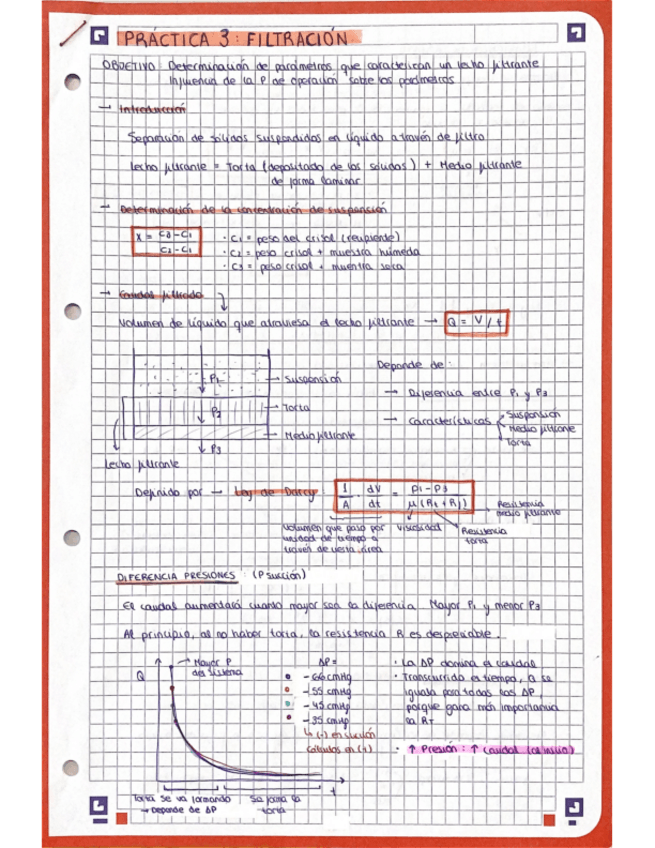 PRÁCTICA 3: FILTRACIÓN
OBJETIVO: Determinación de parámetros que caracterizan un lecho filtrante
Influencia de la P de operación sobre los parámetros
→ Introducción
Separación de sólidos suspendidos en líquido a través de filtro
Lecho filtrante = Torta (depositado de los sólidos) + Medio filtrante
de forma laminar
→ Determinación de la concentración de suspensión
X = C3 - C1 / C2 - C1
· C1 = peso del crisol (recipiente)
· C2 = peso crisol + muestra húmeda
· C3 = peso crisol + muestra seca
→ Caudal filtrado
Volumen de líquido que atraviesa el lecho filtrante → Q = V / t
P1
→ Suspensión
P2
→ Torta
→ Medio filtrante
P3
Lecho filtrante
Depende de:
→ Diferencia entre P1 y P3
→ Características
Suspensión
Medio filtrante
Torta
Definido por → Ley de Darcy: 1/A · dV/dt = P1 - P3 / μ (Rt + Rf)
Resistencia
medio filtrante
Volumen que pasa por
unidad de tiempo a
través de cierta área
Viscosidad
Resistencia
torta
DIFERENCIA PRESIONES: (P succión)
El caudal aumentará cuanto mayor sea la diferencia. Mayor P1 y menor P3
Al principio, al no haber torta, la resistencia R es despreciable.
Q
→ Mayor P
del sistema
ΔP =
- 66 cmHg
- 55 cmHg
- 45 cmHg
- 35 cmHg
↳ (-) en succión
cálculos en (+)
· La ΔP domina el caudal
· Transcurrido el tiempo, Q se
iguala para todas las ΔP,
porque gana más importancia
la RT
· ↑ Presión: ↑ Caudal (al inicio)
t
Torta se va formando
→ Depende de ΔP
Se forma la
torta